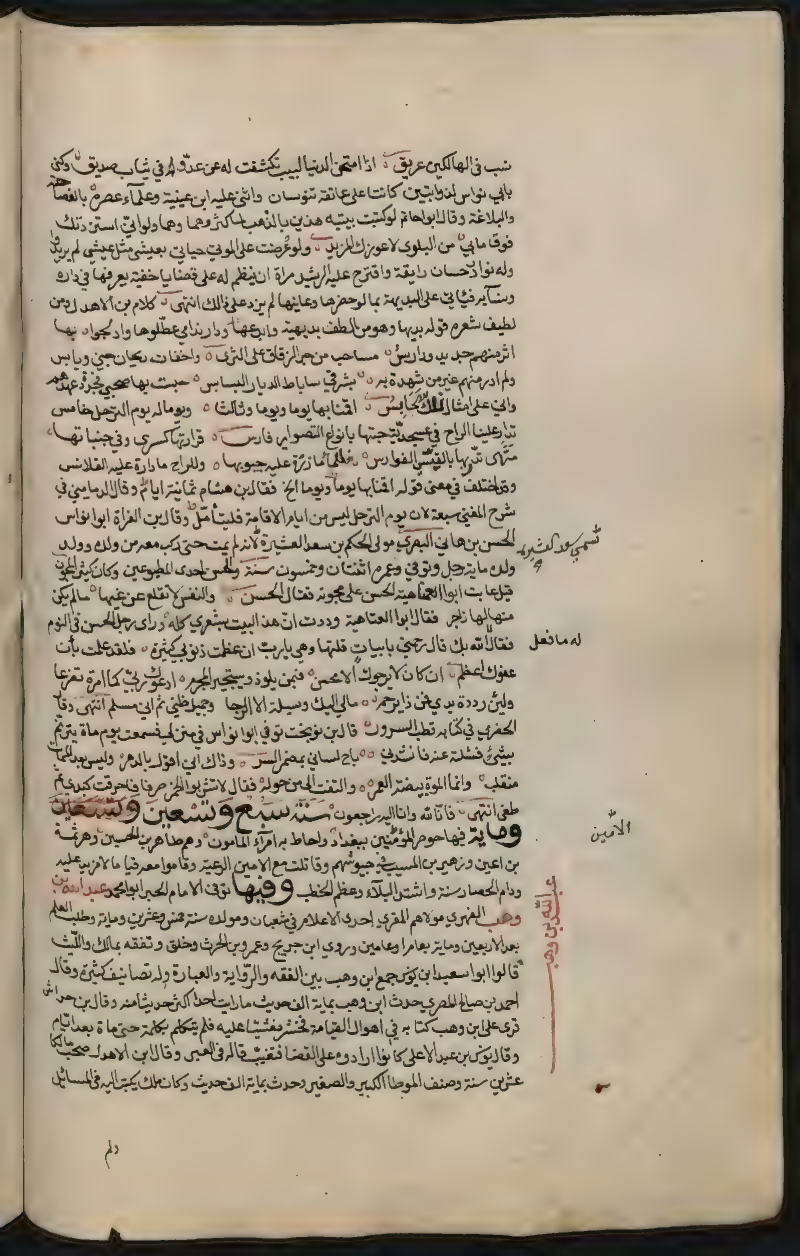 نسب في الهالكين عريق اذا امتحن الدنيا لبيب تكشفت له عن عدو في ثياب صديق وكنى
بابي نواس لذوابتين كانتا على عاتقه تنوسان واثنى عليه ابن عيينة وعلماء عصره بالفصاحة
والبلاغة وقال ابو حاتم لو كتبت بيتيه هذين بالذهب لما كثر وهما ولو اني استزدتك
فوق ما بي من البلوى لاعوزك المزيد ولو عرضت على الموتى حياتي بعيش مثل عيشي لم يريدوا
وله نوادر حسان رايقة واقترح عليه الرشيد مراة ان ينظم له على قضايا خفية يعرفها في داره
ونسآيه فياتي على البديهة بما لو حضرها وعاينها لم يزد على ذالك انتهى كلام بن الاهدل ومن
لطيف شعره قوله بديها وهو من الطف بديهية وابدعها ودار ندامى عطلوها وادلجوا بها
اثر منهم جديد ودارس مساحب من جر الزقاق على الثرى واضغاث ريحان جني ويابس
ولم ادر منهم غير من شهدت به بشرقي ساباط الديار البسابس حبست بها صحبي فجددت عهدهم
واني على امثال تلك لحابس اقمنا بها يوما ويوما وثالثا ويوما له يوم الترحل خامس
تدار علينا الراح في عسجدية حبتها بانواع التصاوير فارس قرارتها كسرى وفي جنباتها
مهى تدريها بالقسي الفوارس فللخمر ما زرت عليه جيوبها وللراح ما دارة عليه القلانس
وقد اختلف في معنى قوله اقمنا بها يوما ويوما الخ فقال ابن هشام ثمانية ايام وقال الدماميني في
شرح المغني سبعة لان يوم الترحل ليس من ايام الاقامة فليتامل وقال ابن الفراة ابو انواس
الحسن بن هاني البصري مولى الحكم بن سعد العشيرة لانه لم يمت حتى ركب معه من ولده وولد
ولده ماية رجل وتوفي وعمره اثنتان وخمسون سنة والحسن احدى المطبوعين وكان كثير المجون
قيل عاتب ابوا العتاهية الحسن على مجونه فقال الحسن والنفس لا تقلع عن غيها ما لم يكن
منها لها زاجر فقال ابوا العتاهية وددت ان هذا البيت بشعري كله وراى رجل الحسن في النوم
فقال الله بك قال رحمني بابيات قلتها وهي يارب ان عظمت ذنوبي كثيرة فلقد علمت بان
عفوك اعظم ان كان لا يرجوك الا محسن فبمن يلوذ ويستجير المجرم ادعوك ربي كما امرة تضرعا
ولئن رددة يدي فمن ذا يرحم مالي اليك وسيلة الا الرجا وجميل ظني ثم اني مسلم انتهى وقال
الحضري في كتابه قطب السرور قال بن نوبخت توفي ابوا نواس في منزلي فسمعت يوم ماة يترنم
بشئ فسئلة عنه فانشدني باح لساني بمضمر السر وذاك اني اقول بالدهر وليس بعد الممات
منقلب وانما الموة بيضة العقر والتفت الى من حوله فقال لا تشربوا الخمر صرفا فاحرقت كبدي ثم
طفى انتهى فانا لله وانا اليه راجعون سنة سبع وتسعين
وماية فيها حوصر المؤمنين ببغداد واحاط به امراء المامون وهم طاهر بن الحسين وهرثمة
بن اعين وزهير بن المسيب في جيوشهم وقاتلت مع الامين الرعية وقاموا معه قياما لا مزيد عليه
ودام الحصار سنة واشتد البلاء وعظم الخطب وفيها توفي الامام الحبر ابو محمد عبدالله بن
وهب الفهري مولاهم المقري احدى الاعلام في شعبان ومولده سنة خمس وعشرين وماية وطلب العلم
بعد الاربعين وماية بعامرا وعامين وروى ابن جريج وعمرو بن الحرث وخلق وتفقه بمالك والليث
قالوا ابوا سعيد ابن يونس جمع ابن وهب بين الفقه والرواية والعبارة وله تصانيف كثيرة وقال
احمد بن صالح المصري حدث ابن وهب بماية الف حديث ما رايت احدا اكثر حديثا منه وقال بن خداش
قرئ على بن وهب كتابه في اهوال القيامة فخر مغشيا عليه فلم يتكلم بكلمة حتى ماة بعد ايام
وقال يونس بن عبد الاعلى كانوا ارادوه على القضا فتغيب قاله في العبر وقال ابن الاهدل صحب مالكا
عشرين سنة وصنف الموطا الكبير والصغير وحدث بماية الف حديث وكان مالك يكتب اليه في المسائل
ولم
تسمى سعد العشيرة
له ما فعل
الامين
عبدالله بن وهب